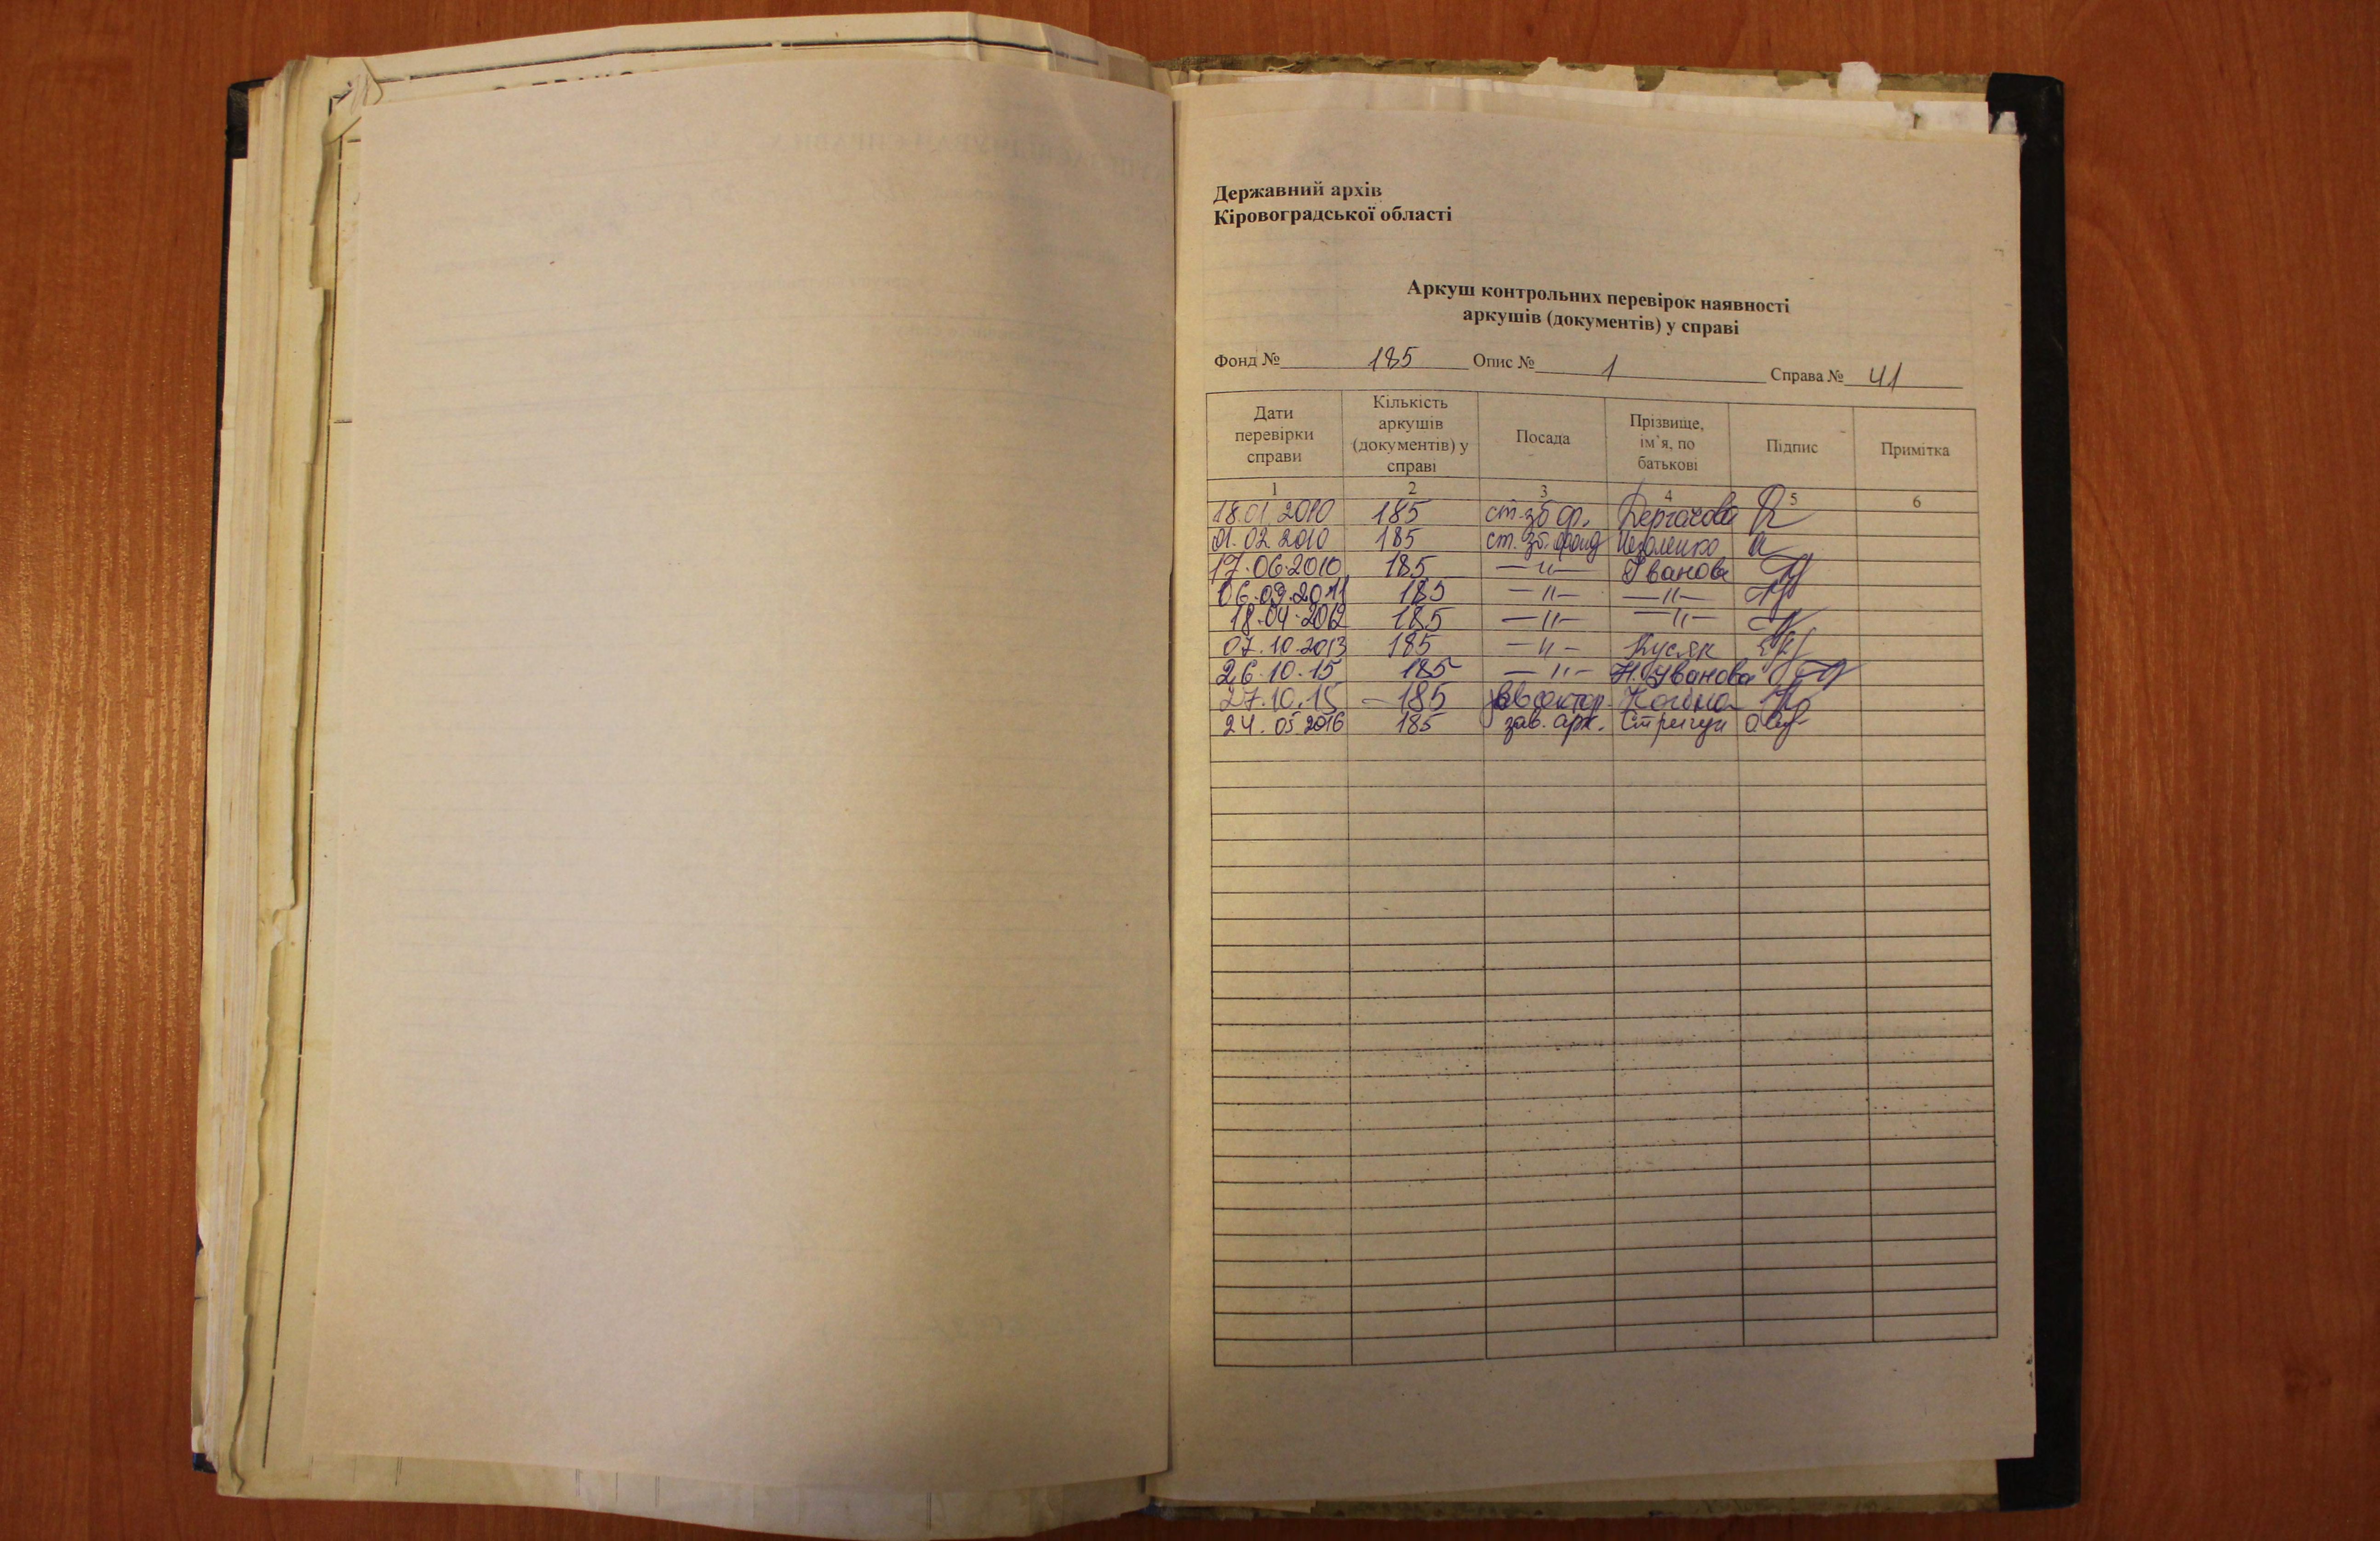 Державний архів
Кіровоградської області
Аркуш контрольних перевірок наявності
аркушів (документів) у справі
Фонд № 185 Опис № 1 Справа № 41
Дати перевірки справи Кількість аркушів (документів) у справі Посада Прізвище, ім'я, по батькові Підпис Примітка
1 2 3 4 5 6
18.01.2010 185 ст. зб ф. Дергачова
01.02.2010 185 ст. зб. фонд
17.06.2010 185 —"— Іванова
06.09.2011 185 —"— —"—
18.04.2012 185 —"— —"—
07.10.2013 185 —"— Кусяк
26.10.15 185 —"— Н. Іванова
27.10.15 – 185
24.05.2016 185 зав. арх. Стригун